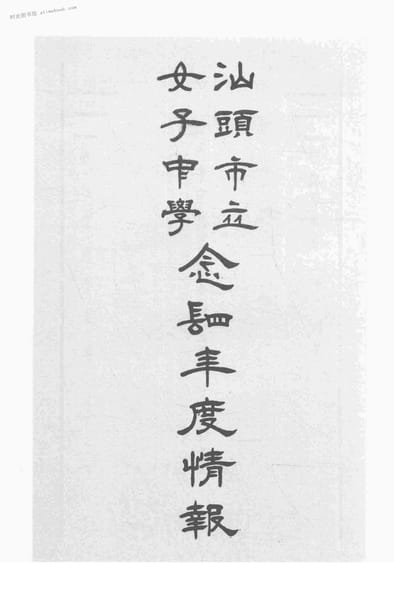 汕頭市立
女子中學
念四年度情報
时光图书馆 atimebook.com